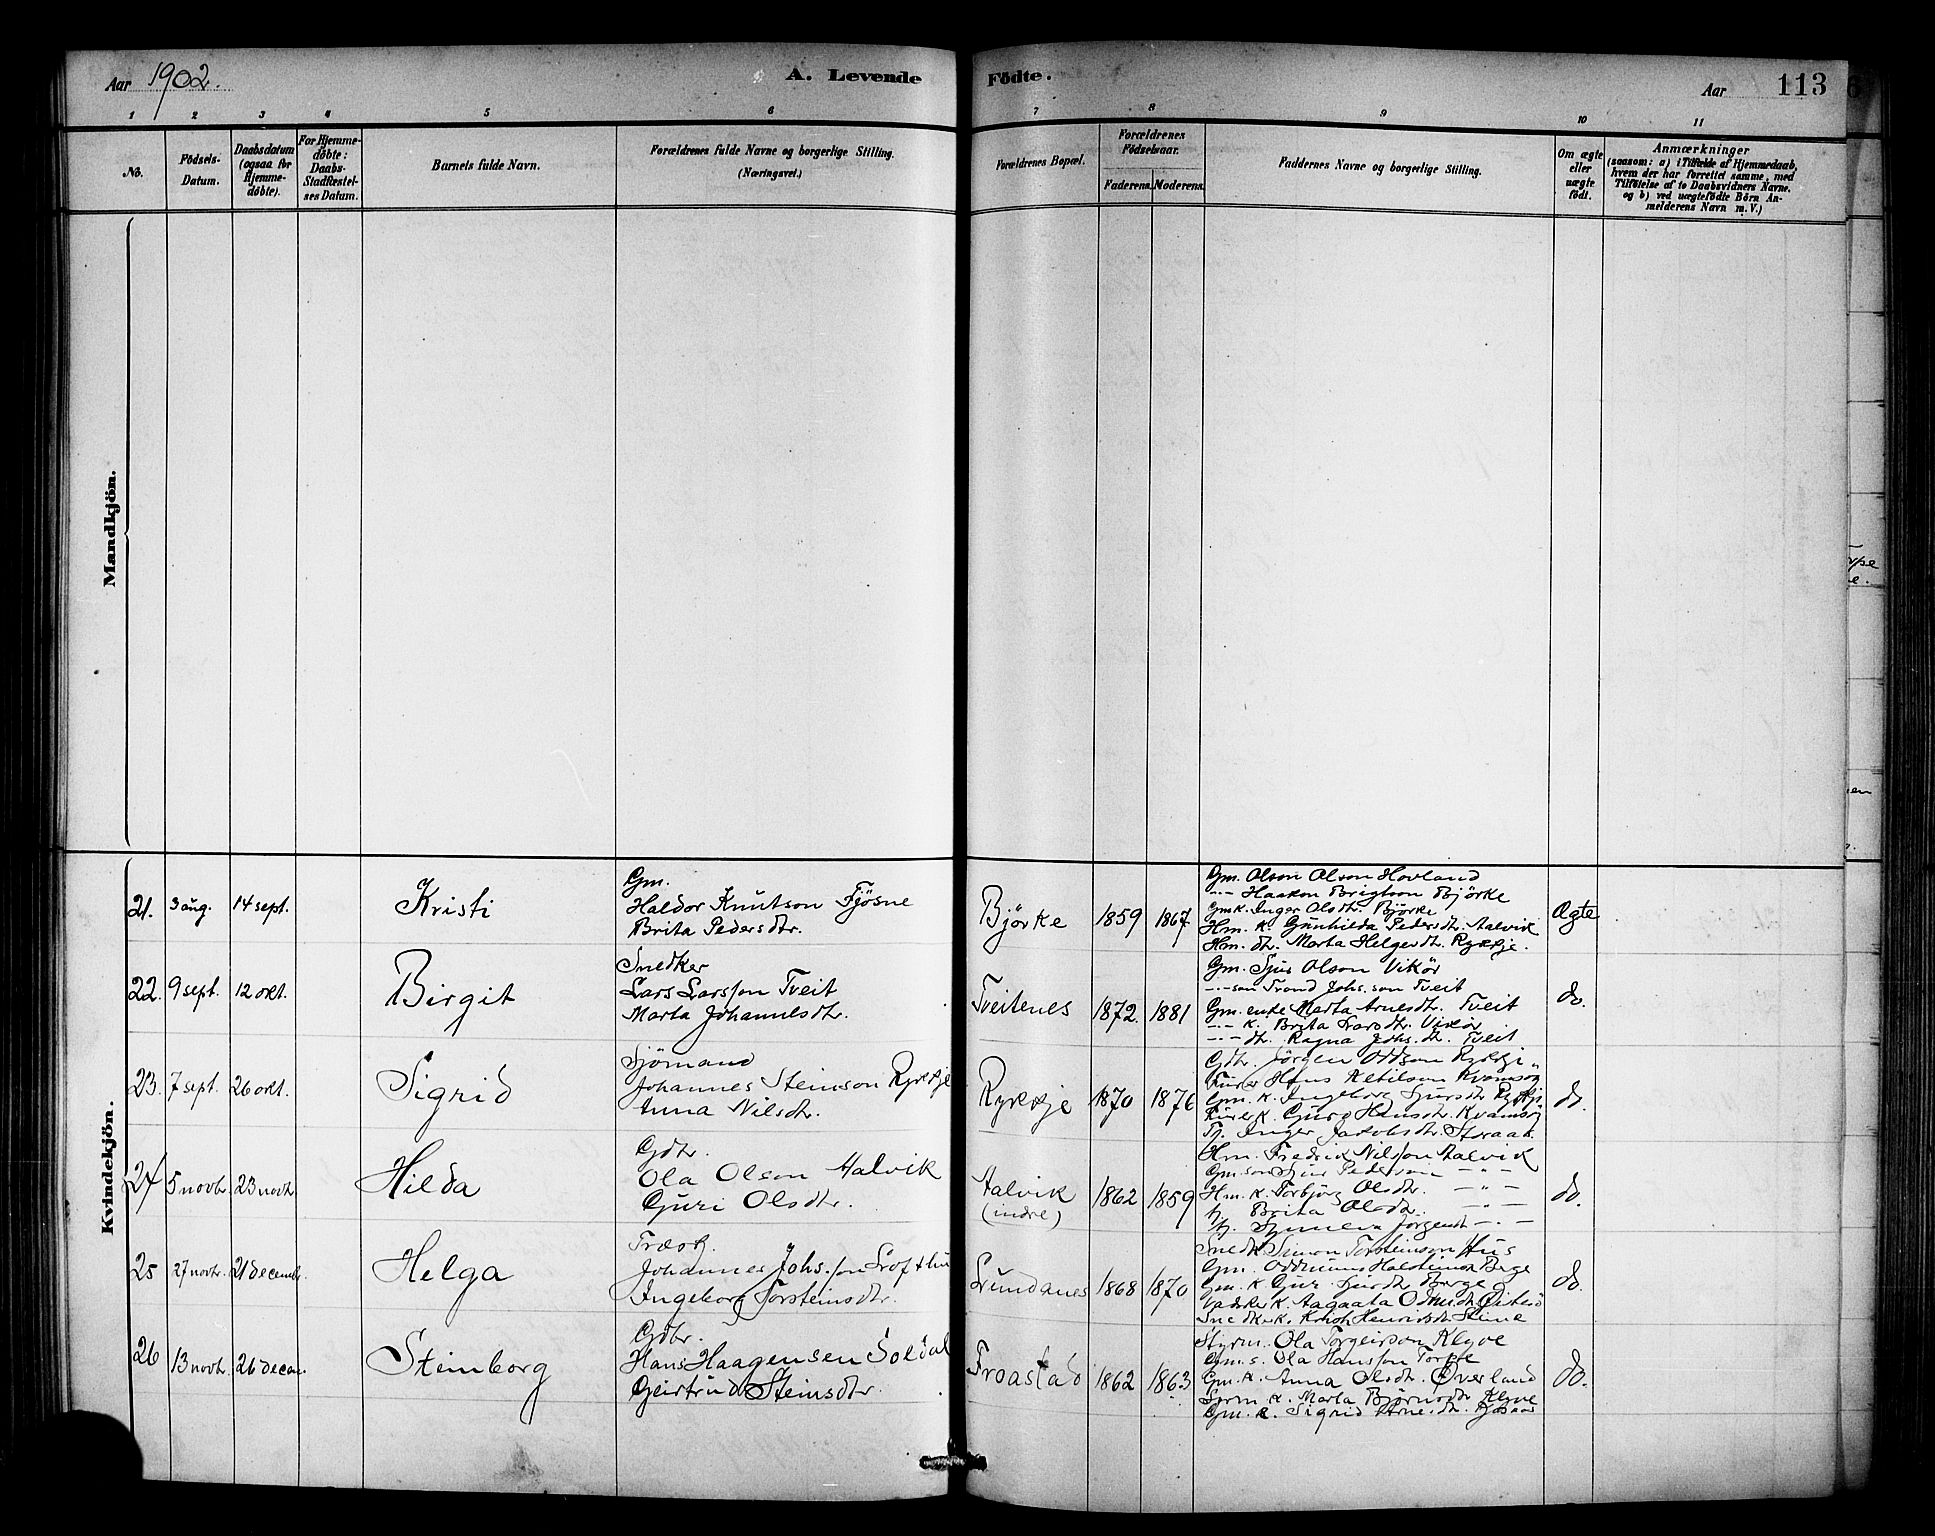 Aar 1902.
A. Levende Födte.
Aar 113
1 2 3 4 5 6 7 8 9 10 11
No.
Födsels-
Datum.
Daabsdatum
(ogsaa for
Hjemme-
döbte).
For Hjemme-
döbte:
Daabs-
Stadfæstel-
ses Datum.
Barnets fulde Navn.
Forældrenes fulde Navne og borgerlige Stilling.
(Næringsvei.)
Forældrenes Bopæl.
Forældrenes
Födselsaar.
Faderens. Moderens.
Faddernes Navne og borgerlige Stilling.
Om ægte
eller
uægte
födt.
Anmærkninger
(saasom: a) i Tilfælde af Hjemmedaab,
hvem der har forrettet samme, med
Tilföielse af to Daabsvidners Navne,
og b) ved uægtefödte Börn An-
melderens Navn m. V.)
Mandkjön.
Kvindekjön.
21. 3 aug. 14 sept. Kristi
Gm.
Haldor Knutson Fjøsne
Brita Pedersdtr.
Bjørke 1859 1867
Gm. Olson Olson Hovland
-"- Haakon Brigtson Bjørke
Gmk. Inger Olsdtr. Bjørke
Hm. k. Gunhilda Pedersdtr. Aalvik
Hm. dtr. Marta Helgesdtr. Rykkje.
Ægte
22. 9 sept. 12 okt. Birgit
Snedker
Lars Larsson Tveit
Marta Johannesdtr.
Tveitenes 1872. 1881
Gm. Sjur Olson Vikör
-"- son Trond Johs. son Tveit
Gm. enke Marta Arnesdtr. Tveit
-"- k. Brita Larsdtr. Vikör
-"- dtr. Ragna Johs. dtr. Tveit
do.
23. 7 sept. 26 okt. Sigrid
Sjömand
Johannes Steinson Rykkje
Anna Nilsdtr.
Rykkje 1870 1876
Gdbr. Jörgen Oddson Rykkje
Hans Ketilson Kvamsøy
Gm. k. Ingeborg Sjursdtr. Rykkje
k. Guro Hansdtr. Kvamsøy
Tj. Inger Jakobsdtr. Straat.
do.
24 5 novbr. 23 novbr. Hilda
Gdbr.
Ola Olson Aalvik
Guri Olsdtr.
Aalvik
(indre)
1862 1859
Hm. Fredrik Nilsson Aalvik
Gm. son Sjur Pederson -"-
Hm. k. Torbjørg Olsdtr. -"-
tj. Brita Olsdtr. -"-
tj. Synneva Jörgensdtr. -"-
do.
25 27 novbr. 21 decembr. Helga
Træsk.
Johannes Johs. son Lofthus
Ingeborg Torsteinsdtr.
Lundanes 1868 1870
Snedk. Simon Torsteinson Hus
Gm. Oddmund Halsteinson Berge
Gm. k. Guri Sjursdtr. Berge
k. Aagaata
Snedker k. Henriksdtr. Steine
do.
26 13 novbr. 26 decem. Steinborg
Gdbr.
Hans Haagensen Soldal
Geirtrud Steinsdtr.
Froastad 1862 1863
Styrm. Ola Torgeirson Klyve
Gm. s. Ola Hansson Torpe
Gm. k. Anna Olsdtr. Øverland
Styrm k. Marta Bjørnsdtr. Klyve
Gm. k. Sigrid Arne. dtr.
do.